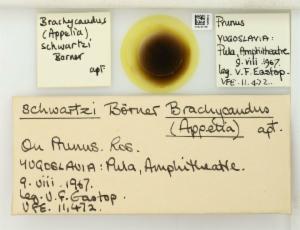 Brachycaudus
(Appelia)
schwartzi
Börner
apt.
Prunus
YUGOSLAVIA:
Pula, Amphitheatre
9. viii. 1967.
leg. V.F. Eastop.
VFE. 11,472.
schwartzi Börner Brachycaudus
(Appelia) apt.
On Prunus. Ros.
YUGOSLAVIA: Pula, Amphitheatre.
9. viii. 1967.
leg. V.F. Eastop.
VFE. 11,472.